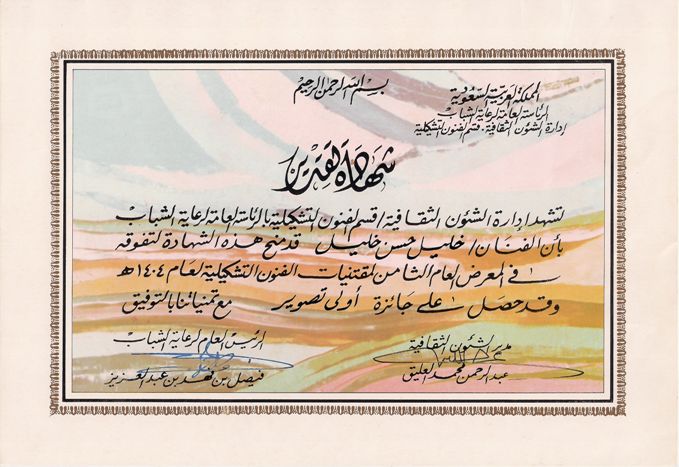 بسم الله الرحمن الرحيم
المملكة العربية السعودية
الرئاسة العامة لرعاية الشباب
إدارة الشئون الثقافية - قسم الفنون التشكيلية
شهادة تقدير
تشهد إدارة الشئون الثقافية / قسم الفنون التشكيلية بالرئاسة العامة لرعاية الشباب
بأن الفنان / خليل حسن خليل قد منح هذه الشهادة لتفوقه
في المعرض العام الثامن لمقتنيات الفنون التشكيلية لعام ١٤٠٤ هـ
وقد حصل على جائزة أولى تصوير مع تمنياتنا بالتوفيق
مدير الشئون الثقافية
عبد الرحمن محمد العليق
الرئيس العام لرعاية الشباب
فيصل بن فهد بن عبد العزيز